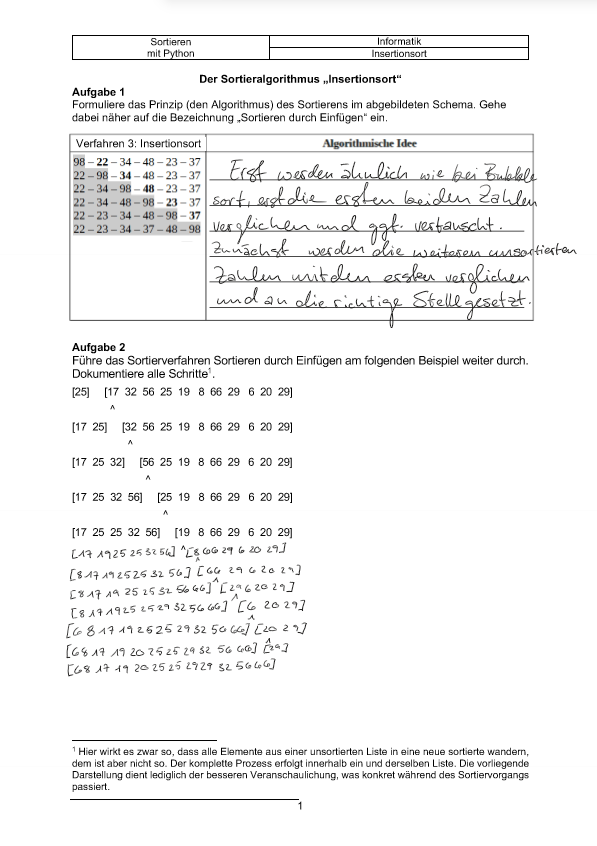 Sortieren
mit Python
Informatik
Insertionsort
Der Sortieralgorithmus „Insertionsort“
Aufgabe 1
Formuliere das Prinzip (den Algorithmus) des Sortierens im abgebildeten Schema. Gehe
dabei näher auf die Bezeichnung „Sortieren durch Einfügen“ ein.
Verfahren 3: Insertionsort
98 – 22 – 34 – 48 – 23 – 37
22 – 98 – 34 – 48 – 23 – 37
22 – 34 – 98 – 48 – 23 – 37
22 – 34 – 48 – 98 – 23 – 37
22 – 23 – 34 – 48 – 98 – 37
22 – 23 – 34 – 37 – 48 – 98
Algorithmische Idee
Erst werden ähnlich wie bei Bubble
sort, erst die ersten beiden Zahlen
verglichen und ggf. vertauscht.
Zunächst werden die weiteren unsortierten
Zahlen mit den ersten verglichen
und an die richtige Stelle gesetzt.
Aufgabe 2
Führe das Sortierverfahren Sortieren durch Einfügen am folgenden Beispiel weiter durch.
Dokumentiere alle Schritte¹.
[25] [17 32 56 25 19 8 66 29 6 20 29]
^
[17 25] [32 56 25 19 8 66 29 6 20 29]
^
[17 25 32] [56 25 19 8 66 29 6 20 29]
^
[17 25 32 56] [25 19 8 66 29 6 20 29]
^
[17 25 25 32 56] [19 8 66 29 6 20 29]
^
[17 19 25 25 32 56] [8 66 29 6 20 29]
^
[8 17 19 25 25 32 56] [66 29 6 20 29]
^
[8 17 19 25 25 32 56 66] [29 6 20 29]
^
[8 17 19 25 25 29 32 56 66] [6 20 29]
^
[6 8 17 19 25 25 29 32 56 66] [20 29]
^
[6 8 17 19 20 25 25 29 32 56 66] [29]
[6 8 17 19 20 25 25 29 29 32 56 66]
¹ Hier wirkt es zwar so, dass alle Elemente aus einer unsortierten Liste in eine neue sortierte wandern,
dem ist aber nicht so. Der komplette Prozess erfolgt innerhalb ein und derselben Liste. Die vorliegende
Darstellung dient lediglich der besseren Veranschaulichung, was konkret während des Sortiervorgangs
passiert.
1